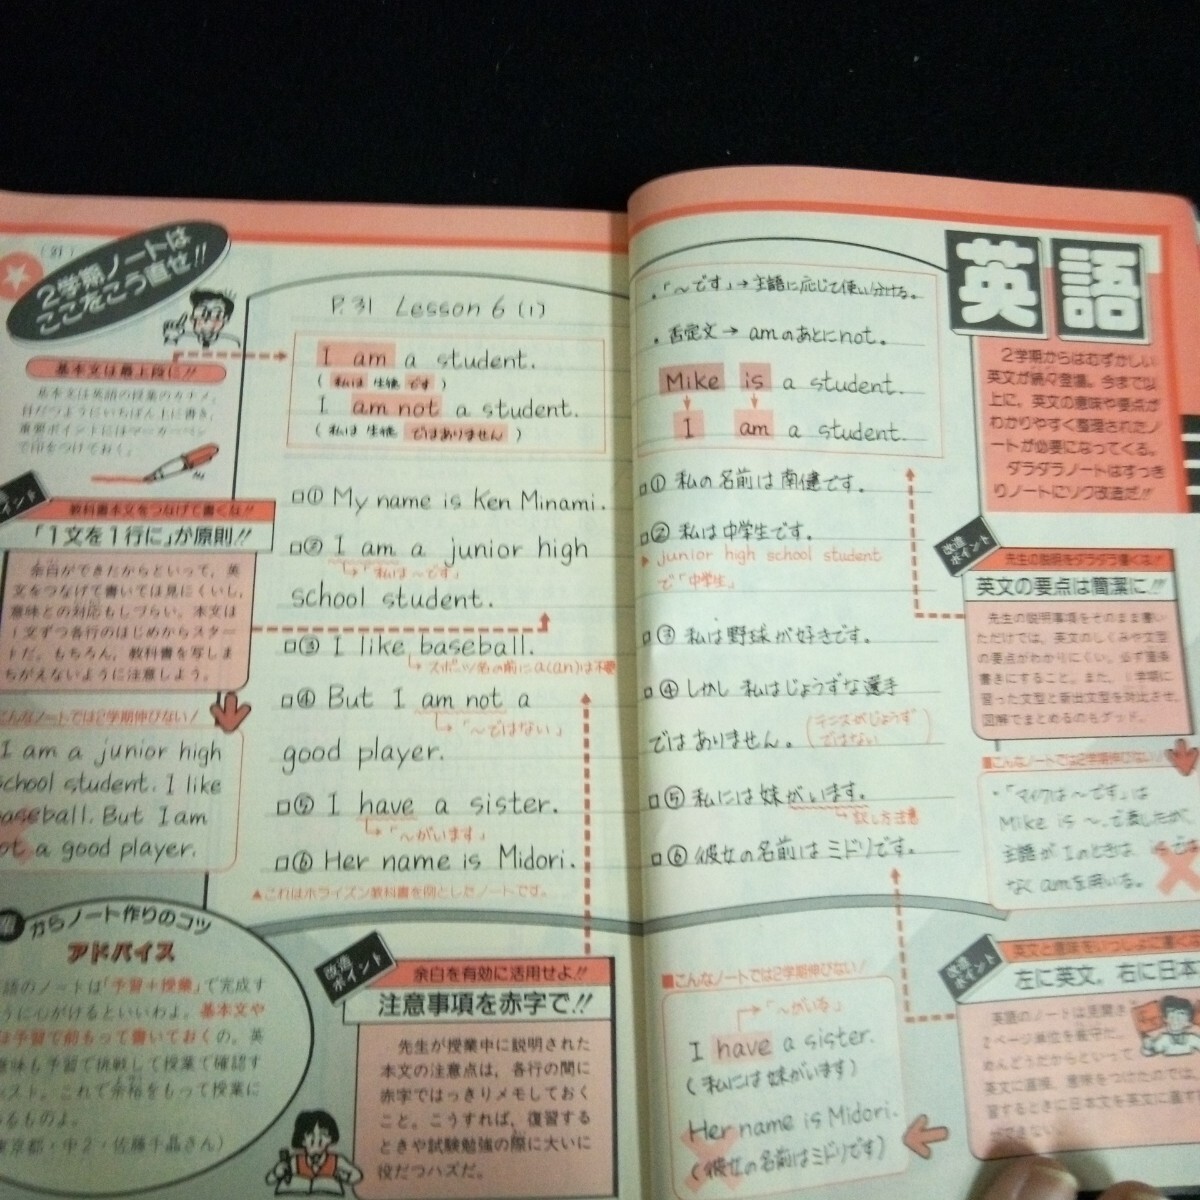 2学期ノートは
ここをこう直せ!!
基本文は最上段に!!
基本文は英語の授業のカナメ。
目だつようにいちばん上に書き、
重要ポイントにはマーカーペン
で印をつけておく。
P.31 Lesson 6 (1)
I am a student.
(私は 生徒 です)
I am not a student.
(私は 生徒 ではありません)
教科書本文をつなげて書くな!!
「1文を1行に」が原則!!
余白ができたからといって、英
文をつなげて書いては見にくいし、
意味との対応もしづらい。本文は
1文ずつ各行のはじめからスター
トだ。もちろん、教科書を写しま
ちがえないように注意しよう。
こんなノートでは2学期伸びない!
I am a junior high
school student. I like
baseball. But I am
not a good player.
□① My name is Ken Minami.
□② I am a junior high
「私は〜です」
school student.
□③ I like baseball.
スポーツ名の前にa(an)は不要
□④ But I am not a
「〜ではない」
good player.
□⑤ I have a sister.
「〜がいます」
□⑥ Her name is Midori.
▲これはホライズン教科書を例としたノートです。
からノート作りのコツ
アドバイス
語のノートは「予習+授業」で完成す
うに心がけるといいわよ。基本文や
は予習で前もって書いておくの。英
意味も予習で挑戦して授業で確認す
ベスト。これで余裕をもって授業に
るものよ。
東京都・中2・佐藤千晶さん)
改造
ポイント
余白を有効に活用せよ!!
注意事項を赤字で!!
先生が授業中に説明された
本文の注意点は、各行の間に
赤字ではっきりメモしておく
こと。こうすれば、復習する
ときや試験勉強の際に大いに
役だつハズだ。
・「〜です」→主語に応じて使い分ける。
・否定文→amのあとにnot。
Mike is a student.
I am a student.
□① 私の名前は南健です。
□② 私は中学生です。
▶junior high school student
で「中学生」
□③ 私は野球が好きです。
□④ しかし 私はじょうずな選手
ではありません。
(テニスがじょうず
ではない)
□⑤ 私には妹がいます。
訳し方注意
□⑥ 彼女の名前はミドリです。
■こんなノートでは2学期伸びない!
「〜がいる」
I have a sister.
(私には妹がいます)
Her name is Midori.
(彼女の名前はミドリです)
英語
2学期からはむずかしい
英文が続々登場。今まで以
上に、英文の意味や要点が
わかりやすく整理されたノ
ートが必要になってくる。
ダラダラノートはすっき
りノートにソク改造だ!!
改造
ポイント
先生の説明をダラダラ書くな!!
英文の要点は簡潔に!!
先生の説明事項をそのまま書い
ただけでは、英文のしくみや文型
の要点がわかりにくい。必ず箇条
書きにすること。また、1学期に
習った文型と新出文型を対比させ、
図解でまとめるのもグッド。
■こんなノートでは2学期伸びない!
・「マイクは〜です」は
Mike is 〜. で表したが、
主語が Iのときは is では
なく amを用いる。
改造
ポイント
英文と意味をいっしょに書くな
左に英文。右に日本
英語のノートは見開き
2ページ単位を厳守だ。
めんどうだからといって
英文に直接、意味をつけたのでは、
習するときに日本文を英文に直す